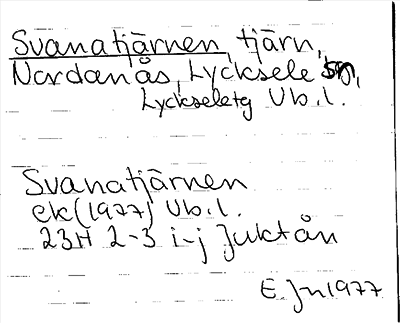 Svanatjärnen, tjärn,
Nordanås, Lycksele sn,
Lyckseletg Vb.l.
Svanatjärnen
ek (1977) Vb.l.
23H 2-3 i-j Juktån
E. Jn 1977